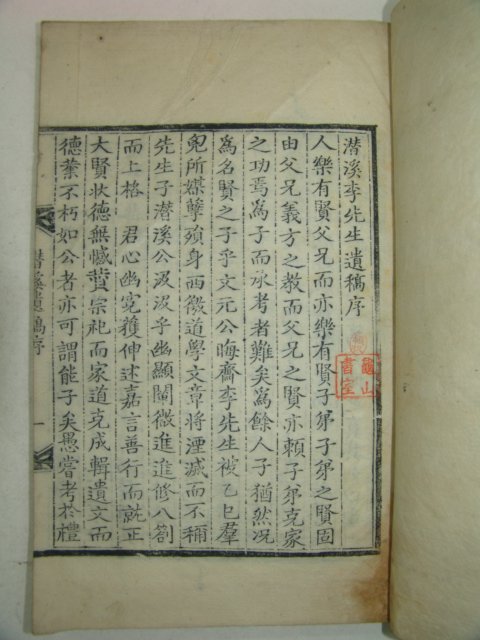 潛溪李先生遺稿序
人樂有賢父兄而亦樂有賢子弟子弟之賢固
由父兄義方之教而父兄之賢亦賴子弟克家
之功焉爲子而承考者難矣爲餘人子猶然況
爲名賢之子乎文元公晦齋李先生被乙巳羣
兇所媒孽殞身西徼道學文章將湮滅而不稱
先生子潛溪公汲汲乎幽顯闡微進進修八劄
而上格 君心幽寃獲伸述嘉言善行而就正
大賢狀德無憾賛宗祀而家道克成輯遺文而
德業不朽如公者亦可謂能子矣愚嘗考於禮
潛溪遺稿序
一
龜山書室